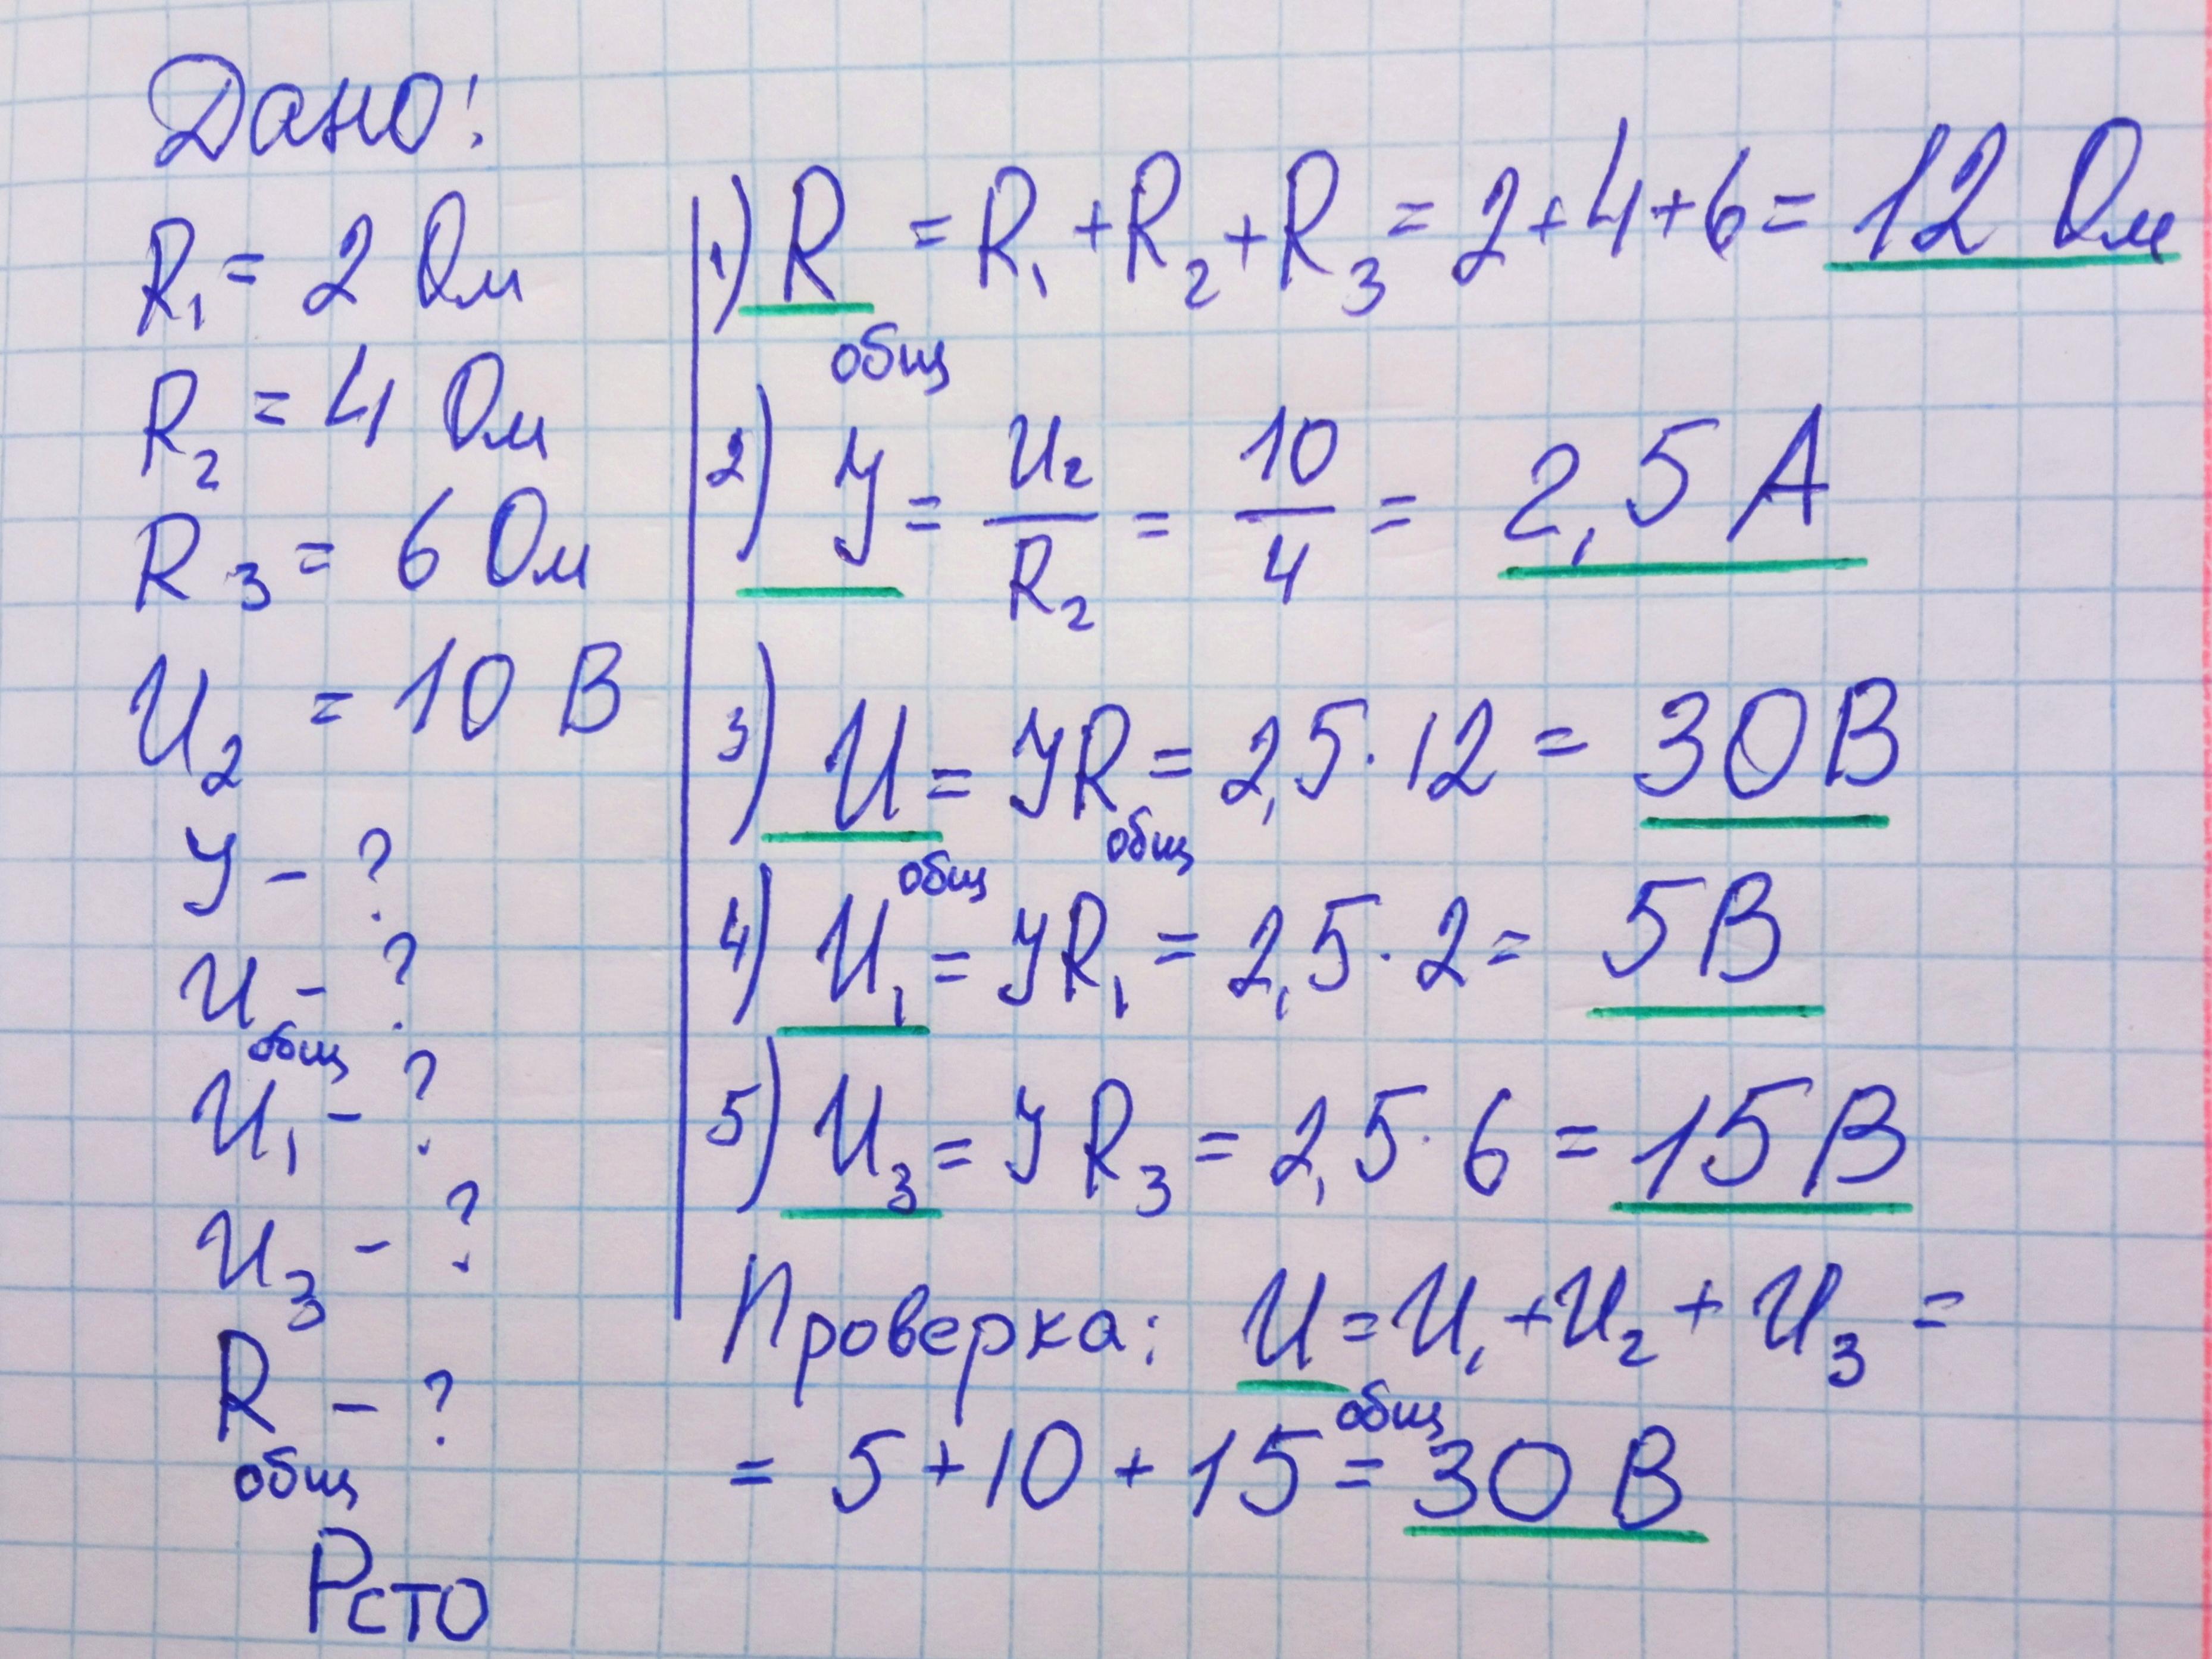 Дано:
R₁ = 2 Ом
R₂ = 4 Ом
R₃ = 6 Ом
U₂ = 10 В
У - ?
U общ - ?
U₁ - ?
U₃ - ?
R общ - ?
Рсто
1) R общ = R₁ + R₂ + R₃ = 2+4+6 = 12 Ом
2) У = U₂/R₂ = 10/4 = 2,5 А
3) U общ = УR общ = 2,5 · 12 = 30 В
4) U₁ = УR₁ = 2,5 · 2 = 5 В
5) U₃ = УR₃ = 2,5 · 6 = 15 В
Проверка: U общ = U₁ + U₂ + U₃ =
= 5 + 10 + 15 = 30 В